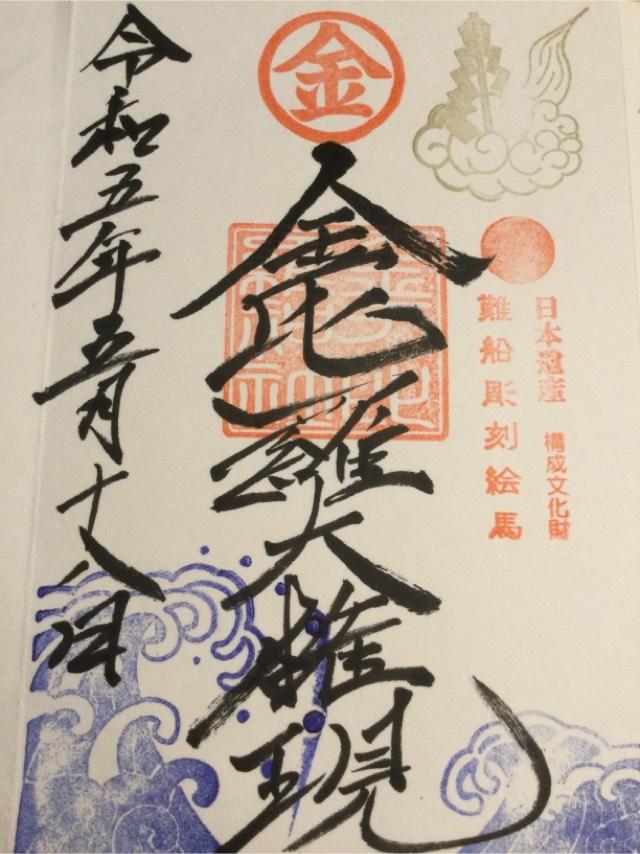 日本遺産 構成文化財
難船彫刻絵馬
金
金比羅大権現
令和五年五月十八日